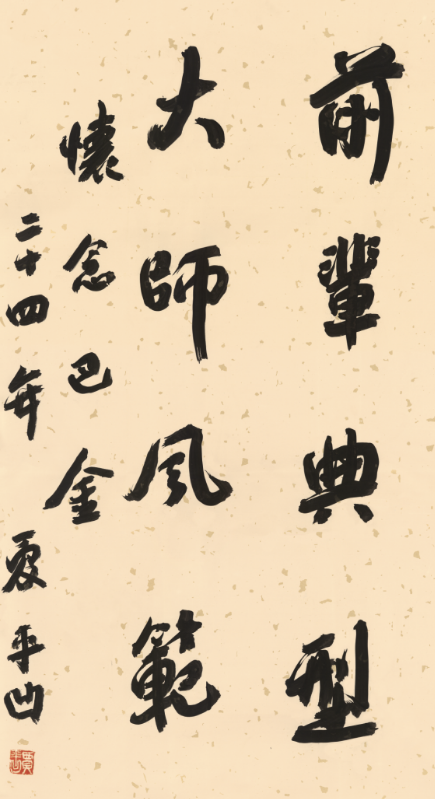 前輩典型
大師风範
懷念巴金
二十四年夏平凹